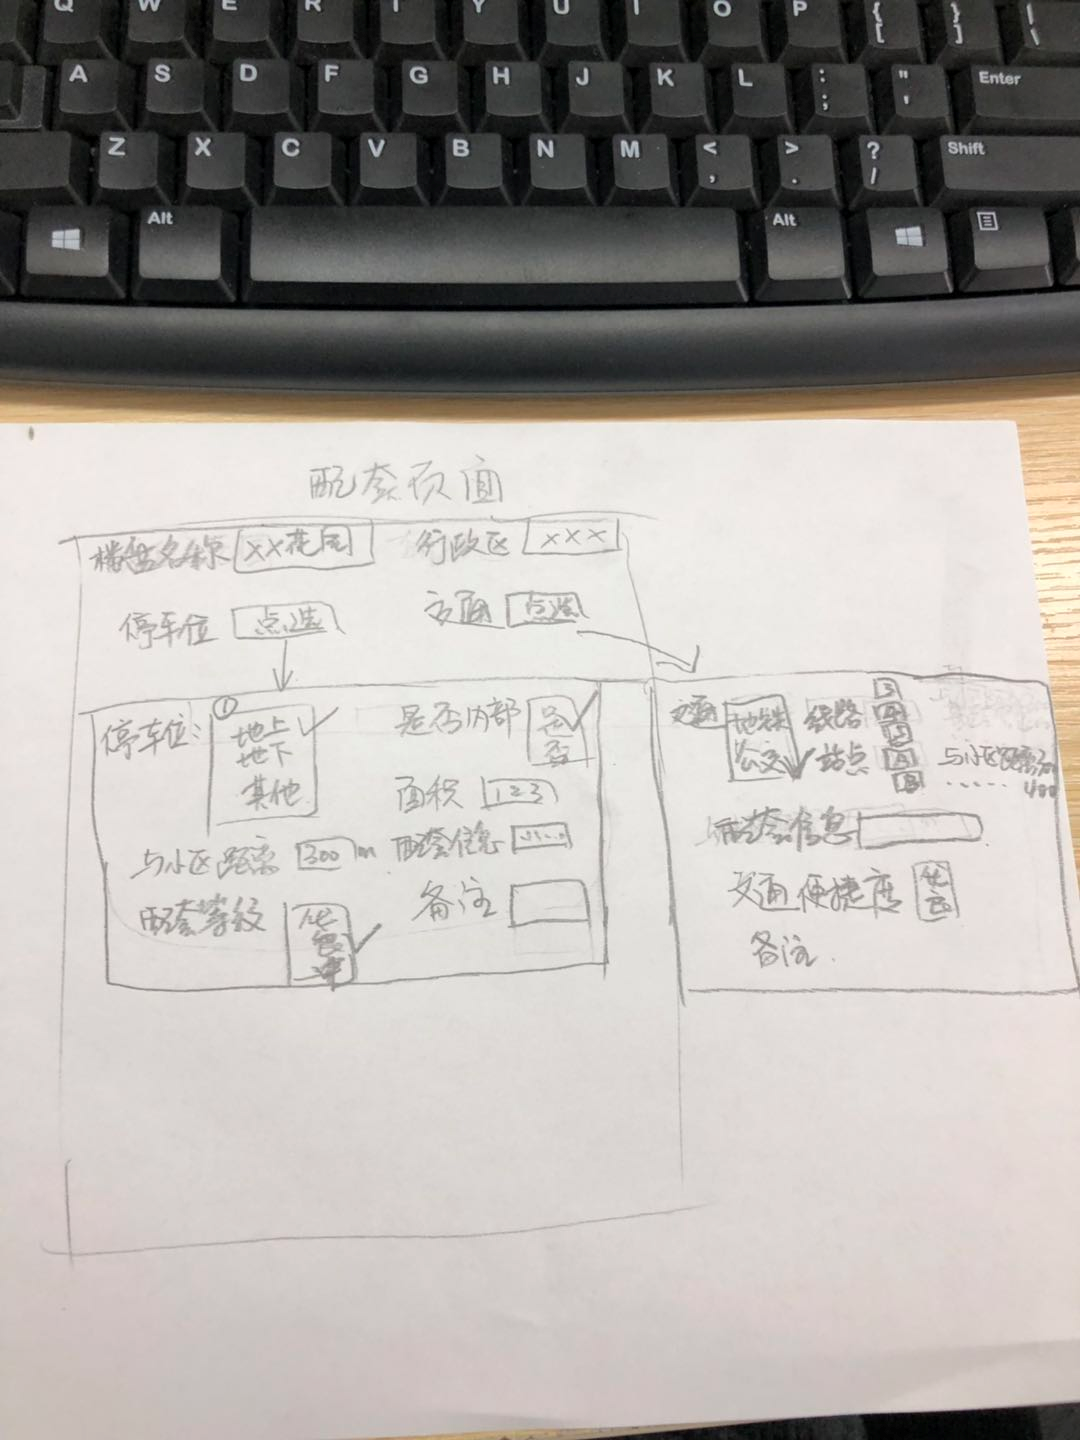 Q W E R T Y U I O P { [ } ] | \
A S D F G H J K L : ; " ' Enter
Z X C V B N M < , > . ? / Shift
Alt Alt
配套页面
楼盘名称 XX花园 行政区 XXX
停车位 点选 交通 点选
停车位: ① 地上 地下 其他 是否内部 是 否
面积 123
与小区距离 300 m 配套信息 ......
配套等级 优 良 中 备注
交通 地铁 公交 线路 3 4 5
站点 A B 与小区距离 300 400
配套信息
交通便捷度 优 良
备注